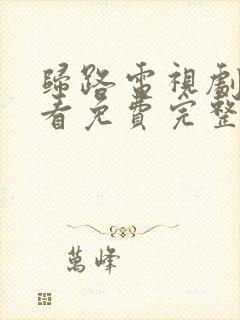 歸路雷視劇
看免費完整
萬峰